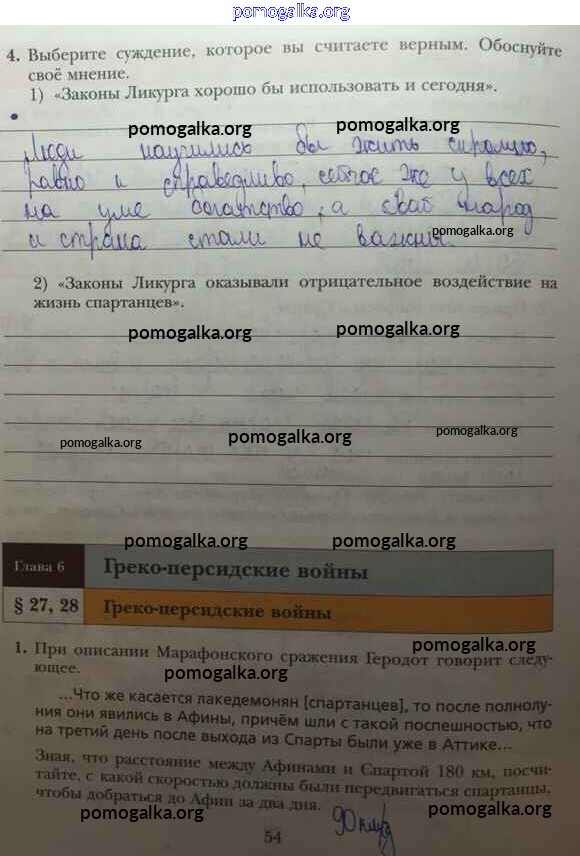 pomogalka.org
4. Выберите суждение, которое вы считаете верным. Обоснуйте
своё мнение.
1) «Законы Ликурга хорошо бы использовать и сегодня».
pomogalka.org pomogalka.org
Люди научились бы жить скромно,
равно и справедливо, сейчас же у всех
на уме богатство, а свой народ
pomogalka.org
и страна стали не важны.
pomogalka.org
2) «Законы Ликурга оказывали отрицательное воздействие на
жизнь спартанцев».
pomogalka.org pomogalka.org
pomogalka.org pomogalka.org pomogalka.org
pomogalka.org pomogalka.org
Глава 6 Греко-персидские войны
§ 27, 28 Греко-персидские войны
1. При описании Марафонского сражения Геродот говорит следу-
pomogalka.org
ющее.
pomogalka.org
...Что же касается лакедемонян [спартанцев], то после полнолу-
ния они явились в Афины, причём шли с такой поспешностью, что
на третий день после выхода из Спарты были уже в Аттике...
Зная, что расстояние между Афинами и Спартой 180 км, посчи-
тайте, с какой скоростью должны были передвигаться спартанцы,
чтобы добраться до Афин за два дня.
90 км/д
pomogalka.org pomogalka.org
54
pomogalka.org